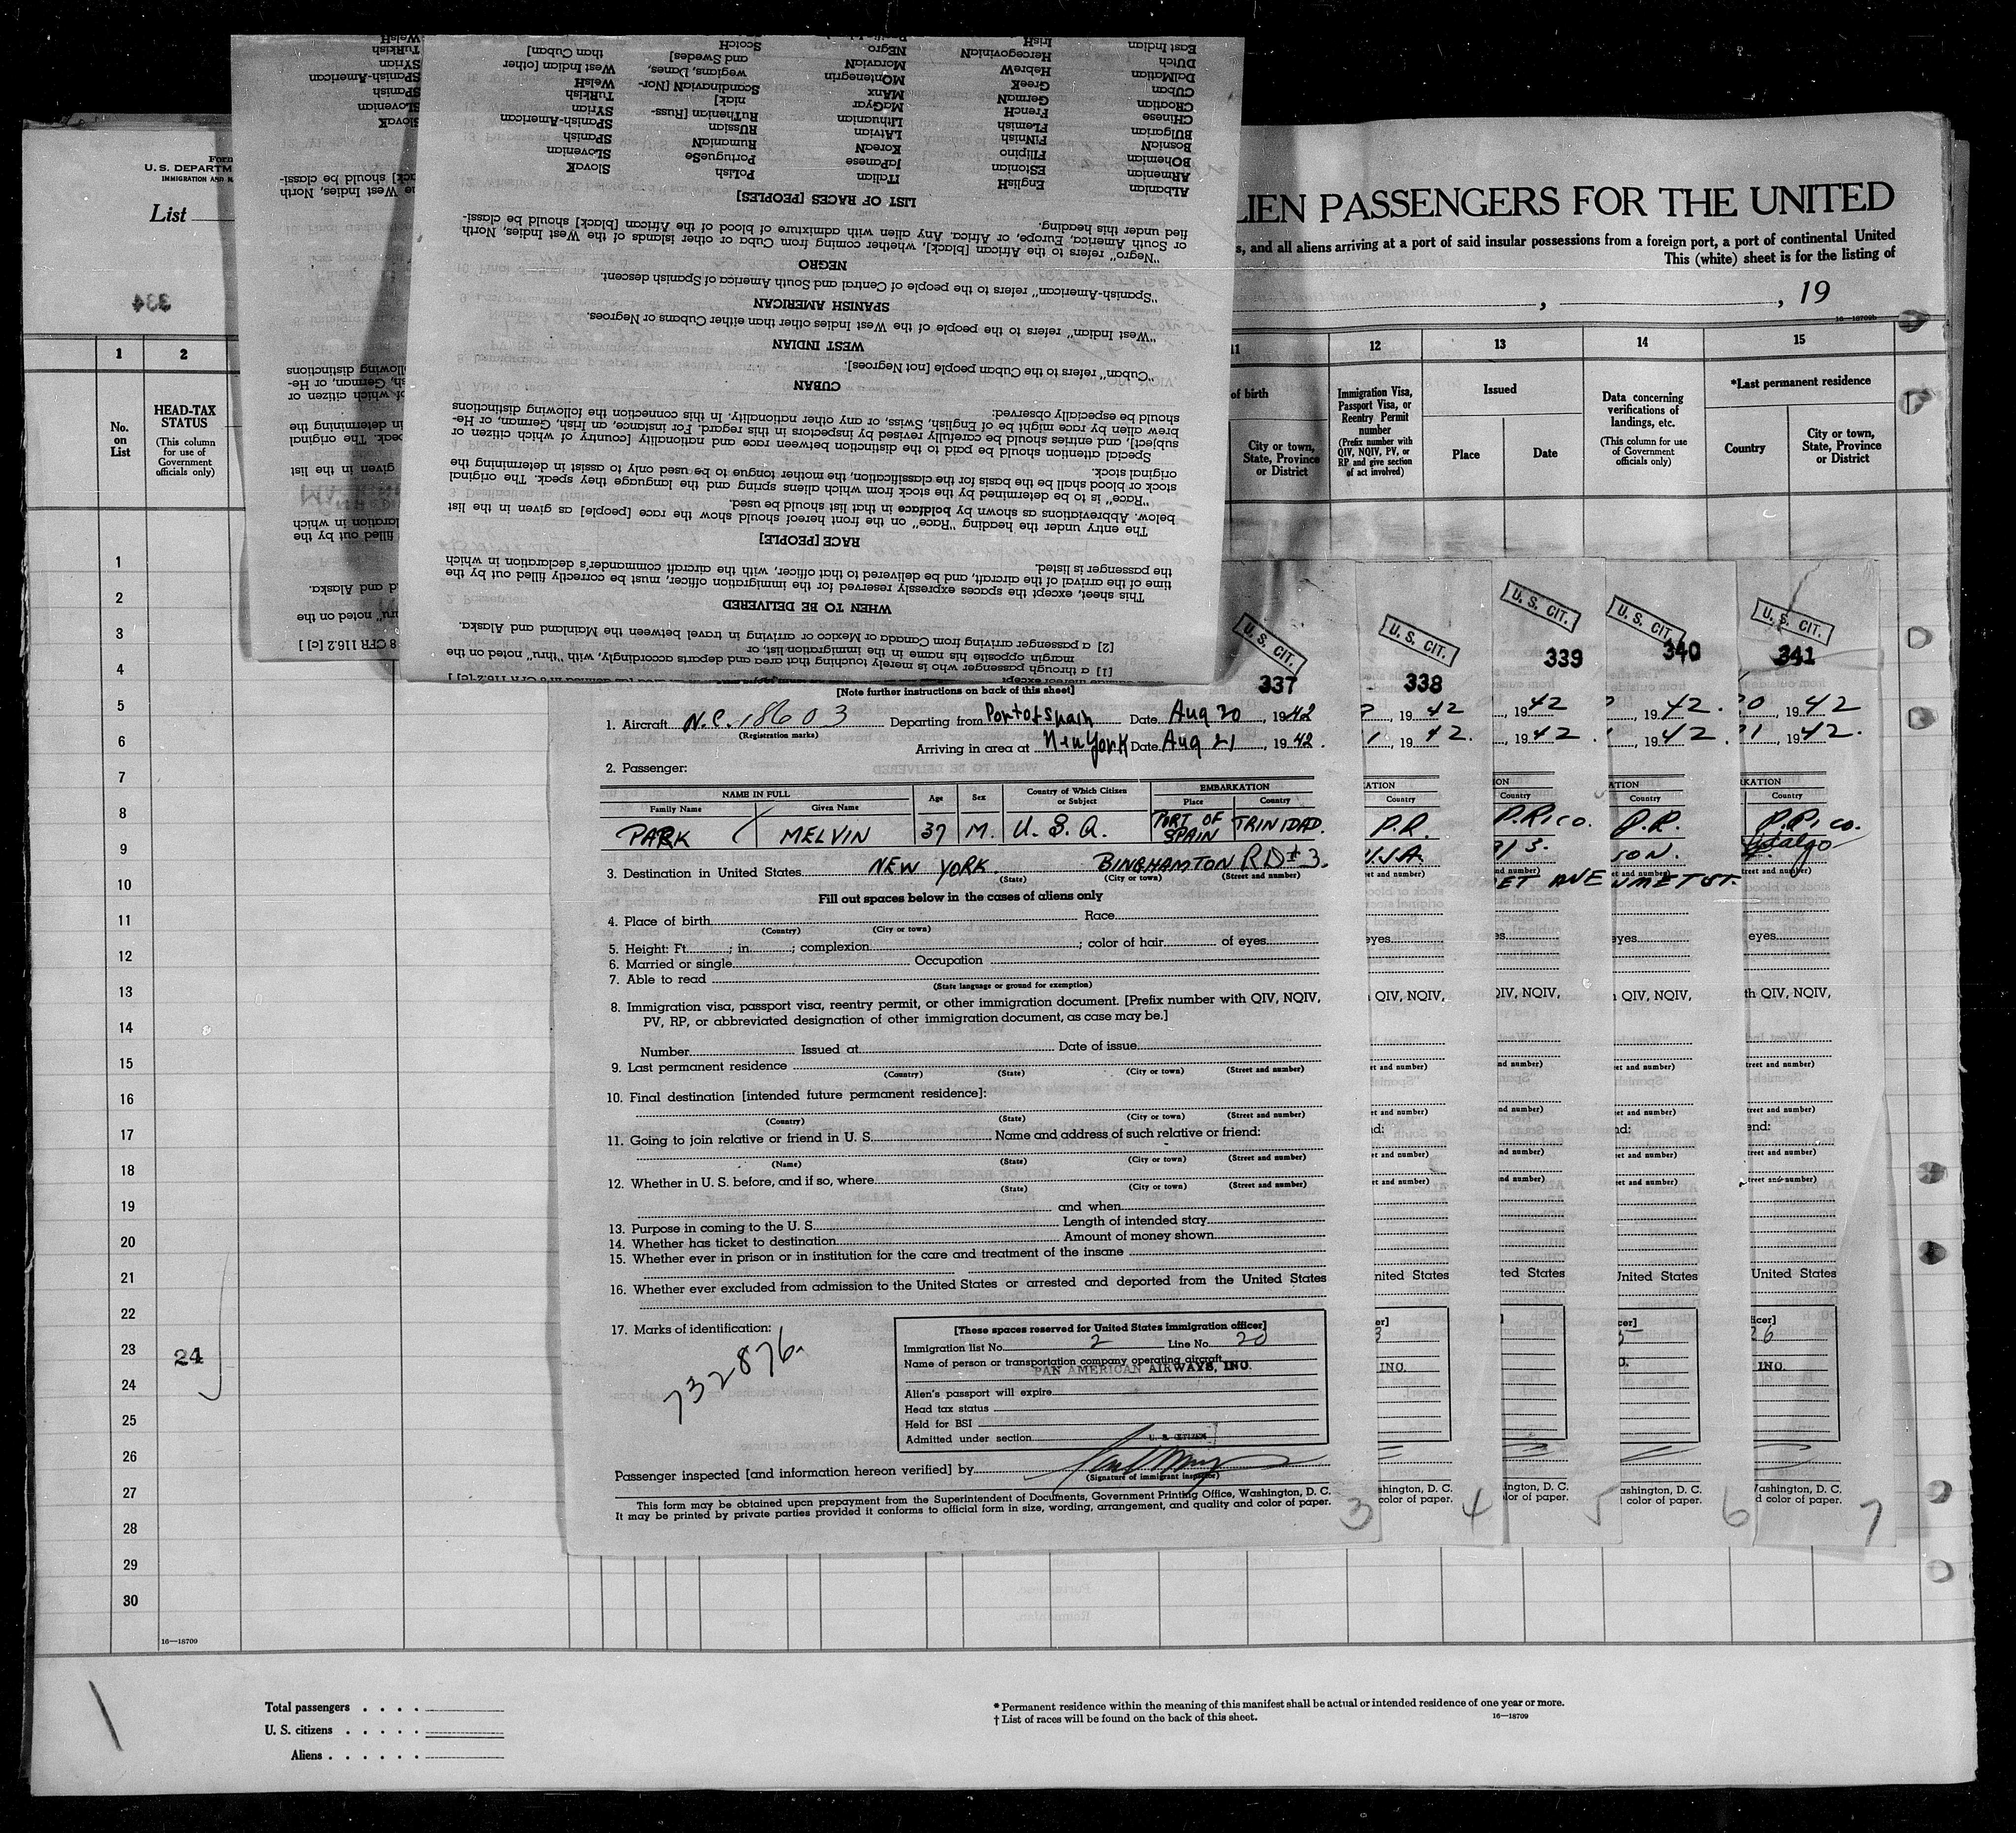 Form
U. S. DEPARTM
IMMIGRATION AND N
List
LIEN PASSENGERS FOR THE UNITED
s, and all aliens arriving at a port of said insular possessions from a foreign port, a port of continental United
This (white) sheet is for the listing of
, , 19
16—18709b
334
1 2 11 12 13 14 15
No. on List
HEAD-TAX STATUS
(This column for use of Government officials only)
of birth
City or town, State, Province or District
Immigration Visa, Passport Visa, or Reentry Permit number
(Prefix number with QIV, NQIV, PV, or RP and give section of act involved)
Issued
Place Date
Data concerning verifications of landings, etc.
(This column for use of Government officials only)
*Last permanent residence
Country
City or town, State, Province or District
1
2
3
4
5
6
7
8
9
10
11
12
13
14
15
16
17
18
19
20
21
22
23
24
25
26
27
28
29
30
24
16—18709
Total passengers . . . .
U. S. citizens . . . . .
Aliens . . . . . .
* Permanent residence within the meaning of this manifest shall be actual or intended residence of one year or more.
† List of races will be found on the back of this sheet.
16—18709
[1] a through passenger who is merely touching that area and departs accordingly, with "thru" noted on the
margin opposite his name in the immigration list, or
[2] a passenger arriving from Canada or Mexico or arriving in travel between the Mainland and Alaska.
WHEN TO BE DELIVERED
This sheet, except the spaces expressly reserved for the immigration officer, must be correctly filled out by the
time of the arrival of the aircraft, and be delivered to that officer, with the aircraft commander's declaration in which
the passenger is listed.
RACE [PEOPLE]
The entry under the heading "Race" on the front hereof should show the race [people] as given in the list
below. Abbreviations as shown by boldface in that list should be used.
"Race" is to be determined by the stock from which aliens spring and the language they speak. The original
stock or blood shall be the basis for the classification, the mother tongue to be used only to assist in determining the
original stock.
Special attention should be paid to the distinction between race and nationality [country of which citizen or
subject], and entries should be carefully revised by inspectors in this regard. For instance, an Irish, German, or He-
brew alien by race might be of English, Swiss, or any other nationality. In this connection the following distinctions
should be especially observed:
CUBAN
"Cuban" refers to the Cuban people [not Negroes].
WEST INDIAN
"West Indian" refers to the people of the West Indies other than either Cubans or Negroes.
SPANISH AMERICAN
"Spanish-American" refers to the people of Central and South America of Spanish descent.
NEGRO
"Negro" refers to the African [black], whether coming from Cuba or other islands of the West Indies, North
or South America, Europe, or Africa. Any alien with admixture of blood of the African [black] should be classi-
fied under this heading.
LIST OF RACES [PEOPLES]
ALbanian EnglisH ITalian PoLish SlovaK
ARmenian EStonian JaPanese PortuguSe SLovenian
BOhemian FIlipino KoreaN RumaniaN SPanish
BosniaN FiNnish LAtvian RUssian SPanish-American
BUlgarian FLemish Lithuanian RuThenian [Russ- SYrian
CHinese FrencH MaGyar niak] TuRkish
CRoatian GermaN MAnx ScandinaviaN [Nor- WelsH
CUban GreeK MOntenegrin wegians, Danes, West Indian [other
DalMatian HebreW MoraviaN and Swedes] than Cuban]
DUtch HercegoviniaN NEgro ScotcH
East Indian IrisH
[Note further instructions on back of this sheet]
U. S. CIT.
337
1. Aircraft N.C. 18603 Departing from Port of Spain Date Aug 20, 1942
(Registration marks)
Arriving in area at New York Date Aug 21, 1942.
2. Passenger:
NAME IN FULL Age Sex Country of Which Citizen or Subject EMBARKATION
Family Name Given Name Place Country
PARK MELVIN 37 M. U. S. A. PORT OF SPAIN TRINIDAD.
3. Destination in United States NEW YORK. BINGHAMTON RD#3.
(State) (City or town) (Street and number)
Fill out spaces below in the cases of aliens only
4. Place of birth Race
(Country) (City or town)
5. Height: Ft. ; in. ; complexion ; color of hair of eyes
6. Married or single Occupation
7. Able to read
(State language or ground for exemption)
8. Immigration visa, passport visa, reentry permit, or other immigration document. [Prefix number with QIV, NQIV,
PV, RP, or abbreviated designation of other immigration document, as case may be.]
Number Issued at Date of issue
9. Last permanent residence
(Country) (State) (City or town) (Street and number)
10. Final destination [intended future permanent residence]:
(Country) (State) (City or town) (Street and number)
11. Going to join relative or friend in U. S. Name and address of such relative or friend:
(Name) (State) (City or town) (Street and number)
12. Whether in U. S. before, and if so, where
(State) (City or town) (Street and number)
and when
13. Purpose in coming to the U. S. Length of intended stay
14. Whether has ticket to destination Amount of money shown
15. Whether ever in prison or in institution for the care and treatment of the insane
16. Whether ever excluded from admission to the United States or arrested and deported from the United States
17. Marks of identification:
732876.
[These spaces reserved for United States immigration officer]
Immigration list No. 2 Line No. 20
Name of person or transportation company operating aircraft
PAN AMERICAN AIRWAYS, INC.
Alien's passport will expire
Head tax status
Held for BSI
Admitted under section U. S. CITIZEN
Passenger inspected [and information hereon verified] by
(Signature of immigrant inspector)
This form may be obtained upon prepayment from the Superintendent of Documents, Government Printing Office, Washington, D. C.
It may be printed by private parties provided it conforms to official form in size, wording, arrangement, and quality and color of paper.
3
U. S. CIT.
338
, 19 42
, 19 42.
Country
P.R.
U.S.A.
QIV, NQIV,
4
U. S. CIT.
339
, 19 42
, 19 42.
Country
P.RICO.
5
U. S. CIT.
340
, 19 42.
, 19 42.
Country
P.R.
6
U. S. CIT.
341
, 19 42
, 19 42.
Country
P. RICO.
7